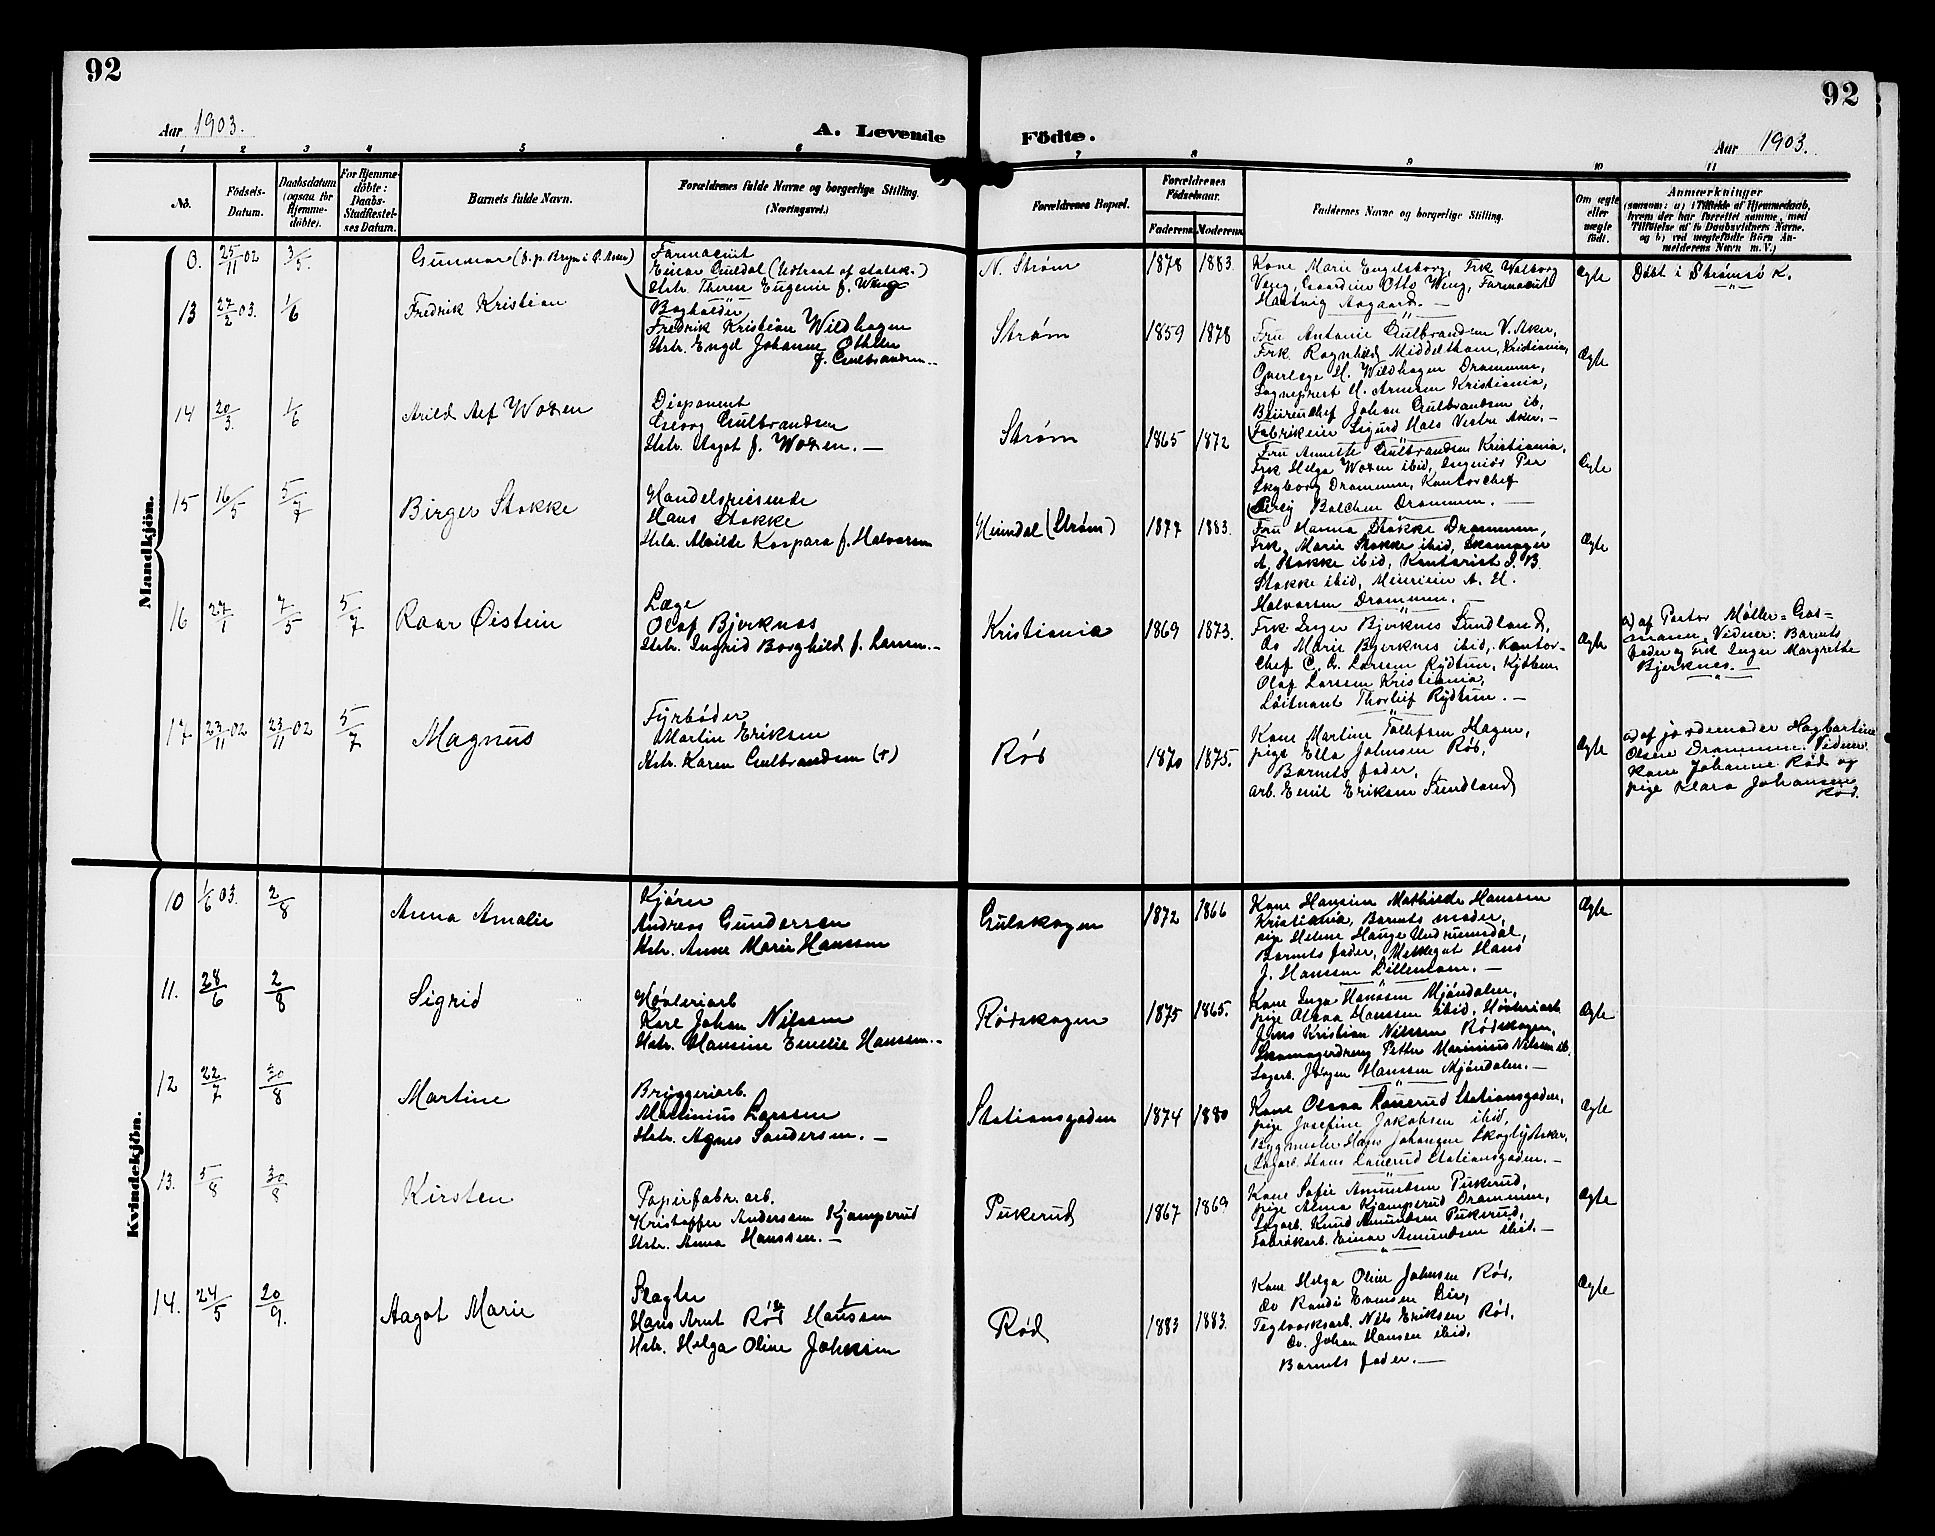 92
92
Aar 1903.
A. Levende
Födte.
Aar 1903.
1
2
3
4
5
6
7
8
9
10
11
No.
Födsels-
Datum.
Daabsdatum
(ogsaa for
Hjemme-
döbte).
For Hjemme-
döbte:
Daabs-
Stadfæstel-
ses Datum.
Barnets fulde Navn.
Forældrenes fulde Navne og borgerlige Stilling.
(Næringsvei.)
Forældrenes Bopæl.
Forældrenes
Födselsaar.
Faderens
Moderens
Faddernes Navne og borgerlige Stilling.
Om ægte
eller
uægte
födt.
Anmærkninger
(saasom: a) i Tilfælde af Hjemmedaab,
hvem der har forrettet samme, med
Tilföielse af to Daabsvidners Navne,
og b) ved uægtefödte Börn An-
melderens Navn m. V.)
Mandkjön.
0.
25/11 02
3/5
Gunnar
Farmaceut
Einar Guldal (Udtraat af statsk.)
Hstr. Therese Eugenie f. Weng
N. Strøm
1878
1883.
Kone Marie Engelsborg, Frk Valborg
Veng, Gaardeier Otto Weng, Farmaceut
Hartvig Aagaard. —
Ægte
Døbt i Strømsø K.
13
27/2 03.
1/6
Fredrik Kristian
Bogholder
Fredrik Kristian Wildhagen
Hstr. Engel Johanne Othilie
f. Gulbrandsen.
Strøm
1859
1878
Fru Antonie Gulbrandsen V. Aker,
Frk. Ragnhild Middelthon, Kristiania,
Overlæge H. Wildhagen Drammen,
Sogneprest H. Arnesen Kristiania,
Bureauchef Johan Gulbrandsen ib,
Fabrikeier Sigurd Hals Vestre Aker. —
Ægte
14
20/3.
1/6
Arild Aef Woxen
Disponent
Georg Gulbrandsen
Hstr. Aagot f. Woxen. —
Strøm
1865
1872
Fru Annette Gulbrandsen Kristiania,
Frk Helga Woxen ibid, Ingeniør Per
Skyborg Drammen, Kontorchef
Balchen Drammen. —
Ægte
15
16/5
5/7
Birger Stokke
Handelsreisende
Hans Stokke
Hstr. Alvilde Kaspara f. Halvorsen
Heimdal (Strøm)
1877
1883.
Fru Hanna Stokke Drammen,
Frk. Marie Stokke ibid, Skomager
A. Stokke ibid, Kontorist S. B.
Stokke ibid, A. H.
Halvorsen Drammen. —
Ægte
16
27/1
7/5
5/7
Roar Øistein
Læge
Olaf Bjerknæs
Hstr. Ingrid Borghild f. Larsen. —
Kristiania
1869
1873.
Frk. Inger Bjerknes Sundland,
Do Marie Bjerknes ibid, Kontor-
chef C. A. Larssen Rydtun, Kjøbm.
Olaf Larssen Kristiania,
Løitnant Thorleif Rydtun. —
Ægte
a) af Pastor Møller-Gas-
mann, Vidner: Barnets
fader og Frk Inger Margrethe
Bjerknes. —
17
23/11 02
23/11 02
5/7
Magnus
Fyrbøder
Martin Eriksen
Hstr. Karen Gulbrandsen (†)
Rød
1870
1875.
Kone Martine Tollefsen Hagen,
pige Ella Johnsen Rød,
Barnets fader,
arb. Emil Eriksen Sundland
Ægte
a) af jordemoder Hagbartine
Olsen Drammen. Vidner:
Kone Johanne Rød og
pige Klara Johansen
Rød.
Kvindekjön.
10
1/6 03.
2/8
Anna Amalie
Kjører
Andreas Gundersen
Hstr. Anne Marie Hanssen
Gulskogen
1872
1866
Kone Hansine Mathilde Hanssen
Kristiania, Barnets moder,
pige Helene Hauge Undrumsdal,
Barnets fader, Hans
J. Hanssen Lillehammer. —
Ægte
11.
28/6
2/8
Sigrid
Høvleriarb
Karl Johan Nilssen
Hstr. Hansine Emelie Hanssen. —
Rødskogen
1875
1865.
Kone Inga Hanssen Mjøndalen,
pige Olava Hanssen ibid, Høvleriarb
Jens Kristian Nilssen Rødskogen,
Skomagerdreng Petter Marinius Nilssen ib.
Sagarb. Jørgen Hanssen Mjøndalen. —
Ægte
12
22/7
30/8
Martine
Bryggeriarb.
Martinius Larssen
Hstr. Agnes Sandersen. —
Stationsgaden
1874
1880
Kone Olava Laverud Stationsgaden,
pige Josefine Jakobsen ibid,
Bygmester Hans Johansen Skoglÿ Asker,
Sagarb. Hans Laverud Stationsgaden. —
Ægte
13.
5/8
30/8
Kirsten
Papirfabr. arb.
Kristoffer Andersen Kjamperud
Hstr. Anna Hanssen. —
Pukerud
1867
1869
Kone Sofie Amundsen Pukerud,
pige Alma Kjamperud Drammen,
Sagarb. Knud Amundsen Pukerud,
Fabrikarb. Einar Amundsen ibid. —
Ægte
14.
24/5
20/9.
Aagot Marie
Slagter
Hans Arnt Rød Hanssen
Hstr. Helga Oline Johnsen
Rød
1883
1883.
Kone Helga Oline Johnsen Rød,
Do Randi Evensen Lier,
Teglverksarb. Nils Eriksen Rød,
Do. Johan Hansen ibid,
Barnets fader. —
Ægte